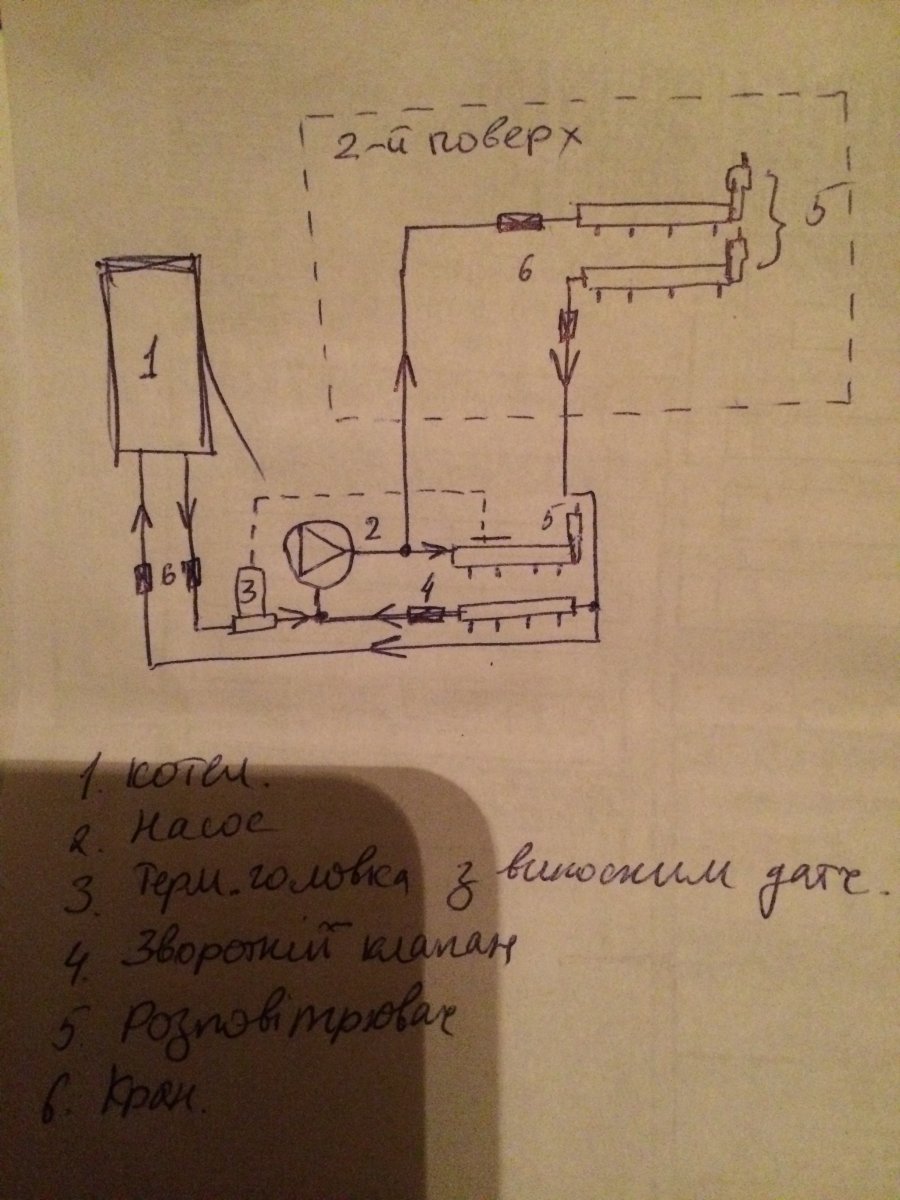 2-й поверх
5
6
1
5
2
6
3
4
1. котел.
2. Насос
3. Терм. головка з виносним датч.
4. Зворотній клапан
5. Розповітрювач
6. Кран.